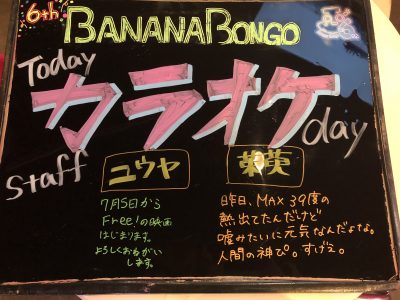 6th BANANABONGO
Today
カラオケ
day
Staff
ユウヤ
7月5日から
Free!の映画
はじまります。
よろしくおねがい
します。
昨日、MAX 39度の
熱出てたんだけど
嘘みたいに元気なんだよな。
人間の神ぴ。すげぇ。